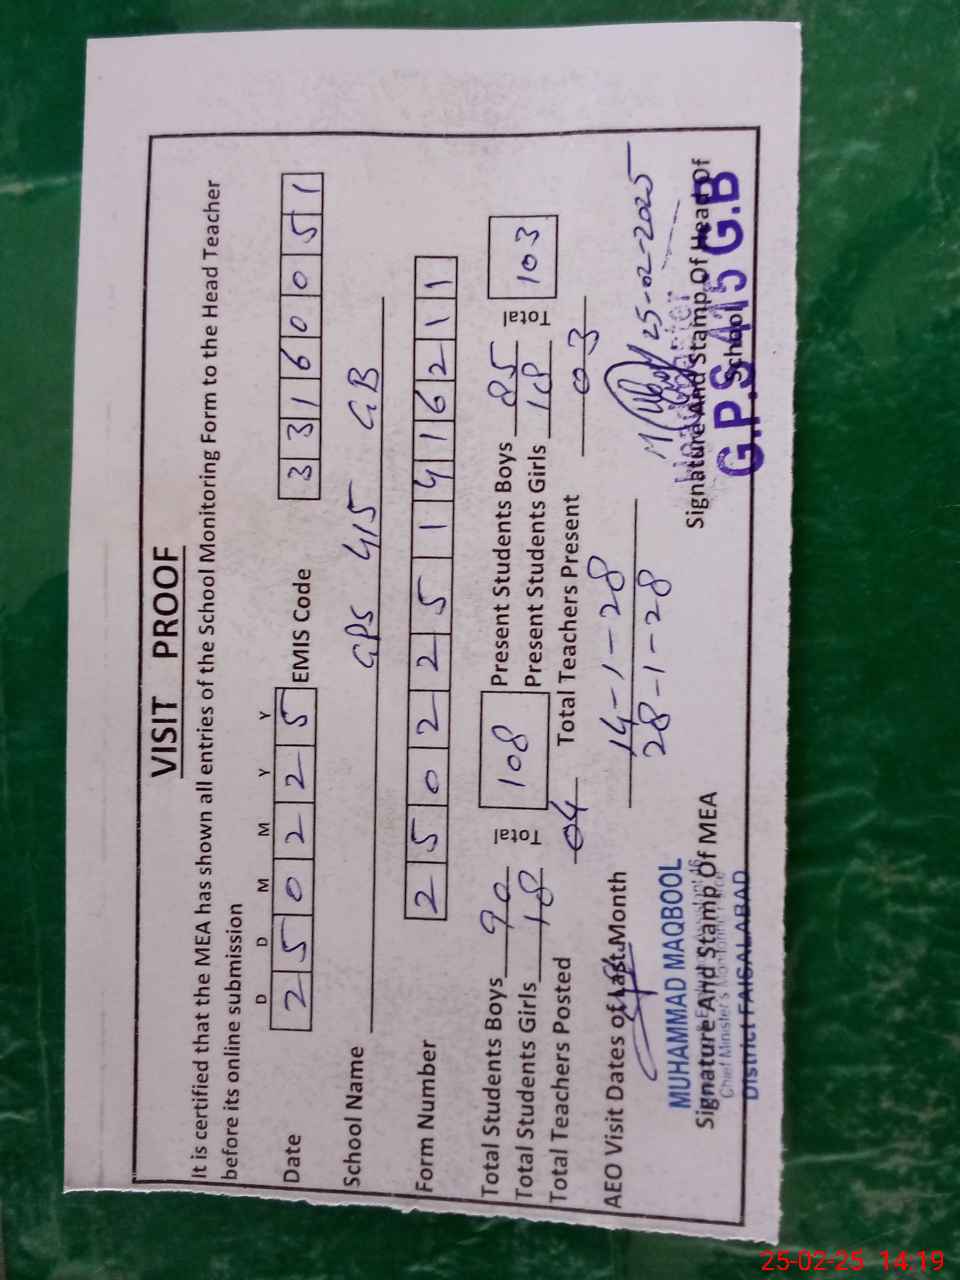 VISIT PROOF
It is certified that the MEA has shown all entries of the School Monitoring Form to the Head Teacher
before its online submission
D D M M Y Y
Date 2 5 0 2 2 5 EMIS Code 3 3 1 6 0 0 5 1
School Name GPS 415 GB
Form Number 2 5 0 2 2 5 1 4 1 6 2 1 1
Total Students Boys 90 Total 108 Present Students Boys 85 Total 103
Total Students Girls 18 Present Students Girls 18
Total Teachers Posted 04 Total Teachers Present 03
AEO Visit Dates of Last Month 14-1-28
28-1-28
25-02-2025
MUHAMMAD MAQBOOL
Signature And Stamp Of MEA
Chief Minister's Monitoring Force
District FAISALABAD
Signature And Stamp Of Head Of
School
G.P.S 415 G.B
25-02-25 14:19